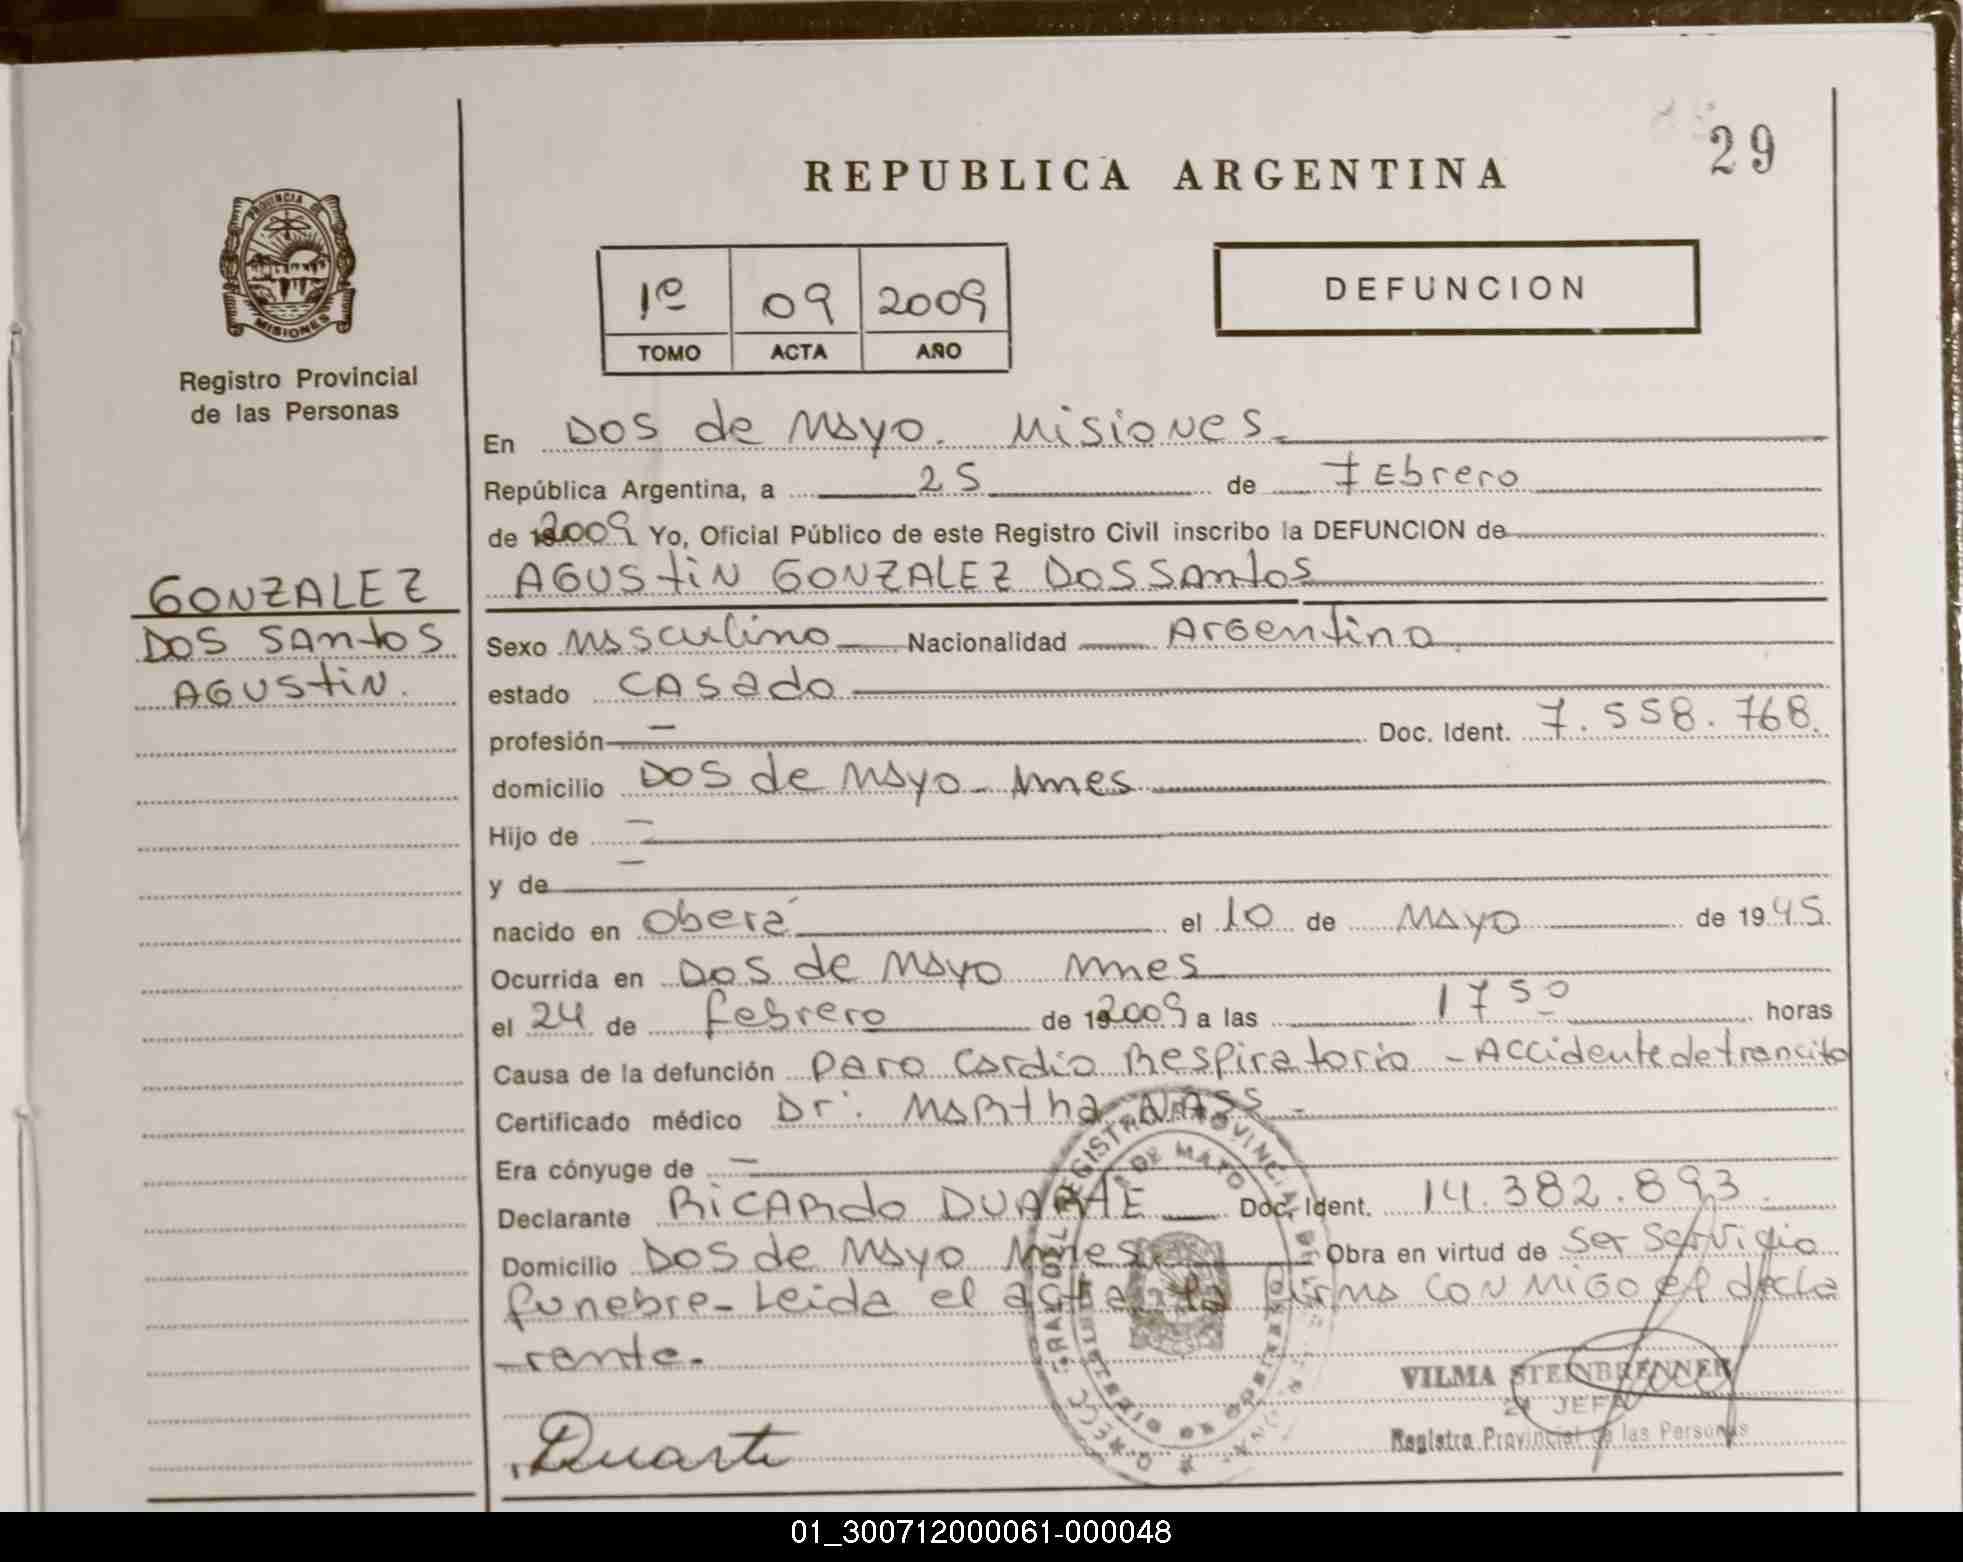 29
REPUBLICA ARGENTINA
PROVINCIA DE
MISIONES
Registro Provincial
de las Personas
1º 09 2009
TOMO ACTA AÑO
DEFUNCION
En Dos de Mayo. Misiones.
República Argentina, a 25 de Febrero
de 2009 Yo, Oficial Público de este Registro Civil inscribo la DEFUNCION de
GONZALEZ
DOS SANTOS
AGUSTIN.
AGUSTIN GONZALEZ DOS SANTOS
Sexo Masculino Nacionalidad Argentina
estado Casado
profesión — Doc. Ident. 7.558.768.
domicilio Dos de Mayo - Mnes
Hijo de —
y de —
nacido en Oberá el 10 de Mayo de 1945.
Ocurrida en Dos de Mayo Mnes
el 24 de febrero de 2009 a las 17 50 horas
Causa de la defunción Paro Cardio Respiratorio - Accidente de trancito
Certificado médico Dr. Martha NASS -
Era cónyuge de —
Declarante RICARDO DUARTE Doc. Ident. 14.382.893.
Domicilio Dos de Mayo Mnes. Obra en virtud de ser servicio
funebre - Leida el acta la firma conmigo el decla
-rante.
VILMA STEINBRENNER
JEFA
Registro Provincial de las Personas
Duarte
01_300712000061-000048